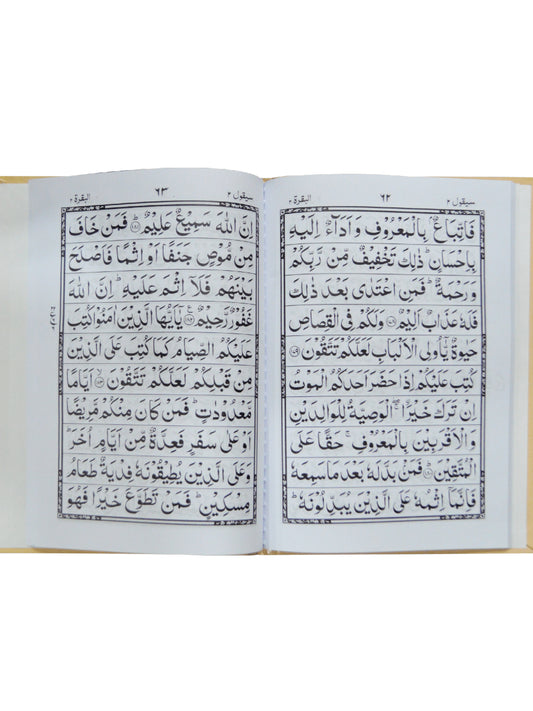 سيقول ٢ ٦٢ البقرة ٢
فَاتِّبَاعٌۢ بِالْمَعْرُوْفِ وَاَدَآءٌ اِلَيْهِ
بِاِحْسَانٍ ؕ ذٰلِكَ تَخْفِيْفٌ مِّنْ رَّبِّكُمْ
وَرَحْمَةٌ ؕ فَمَنِ اعْتَدٰى بَعْدَ ذٰلِكَ
فَلَهٗ عَذَابٌ اَلِيْمٌ ﴿١٧٨﴾ وَلَكُمْ فِى الْقِصَاصِ
حَيٰوةٌ يّٰۤاُولِى الْاَلْبَابِ لَعَلَّكُمْ تَتَّقُوْنَ ﴿١٧٩﴾
كُتِبَ عَلَيْكُمْ اِذَا حَضَرَ اَحَدَكُمُ الْمَوْتُ
اِنْ تَرَكَ خَيْرَا ۖۚ الْوَصِيَّةُ لِلْوَالِدَيْنِ
وَالْاَقْرَبِيْنَ بِالْمَعْرُوْفِ ۚ حَقًّا عَلَى
الْمُتَّقِيْنَ ؕ ﴿١٨٠﴾ فَمَنْۢ بَدَّلَهٗ بَعْدَ مَا سَمِعَهٗ
فَاِنَّمَاۤ اِثْمُهٗ عَلَى الَّذِيْنَ يُبَدِّلُوْنَهٗ ؕ
سيقول ٢ ٦٣ البقرة ٢
اِنَّ اللّٰهَ سَمِيْعٌ عَلِيْمٌ ؕ ﴿١٨١﴾ فَمَنْ خَافَ
مِنْ مُّوْصٍ جَنَفًا اَوْ اِثْمًا فَاَصْلَحَ
بَيْنَهُمْ فَلَاۤ اِثْمَ عَلَيْهِ ؕ اِنَّ اللّٰهَ
غَفُوْرٌ رَّحِيْمٌ ﴿١٨٢﴾ يٰۤاَيُّهَا الَّذِيْنَ اٰمَنُوْا كُتِبَ
عَلَيْكُمُ الصِّيَامُ كَمَا كُتِبَ عَلَى الَّذِيْنَ
مِنْ قَبْلِكُمْ لَعَلَّكُمْ تَتَّقُوْنَ ﴿١٨٣﴾ اَيَّامًا
مَّعْدُوْدٰتٍ ؕ فَمَنْ كَانَ مِنْكُمْ مَّرِيْضًا
اَوْ عَلٰى سَفَرٍ فَعِدَّةٌ مِّنْ اَيَّامٍ اُخَرَ ؕ
وَعَلَى الَّذِيْنَ يُطِيْقُوْنَهٗ فِدْيَةٌ طَعَامُ
مِسْكِيْنٍ ؕ فَمَنْ تَطَوَّعَ خَيْرًا فَهُوَ